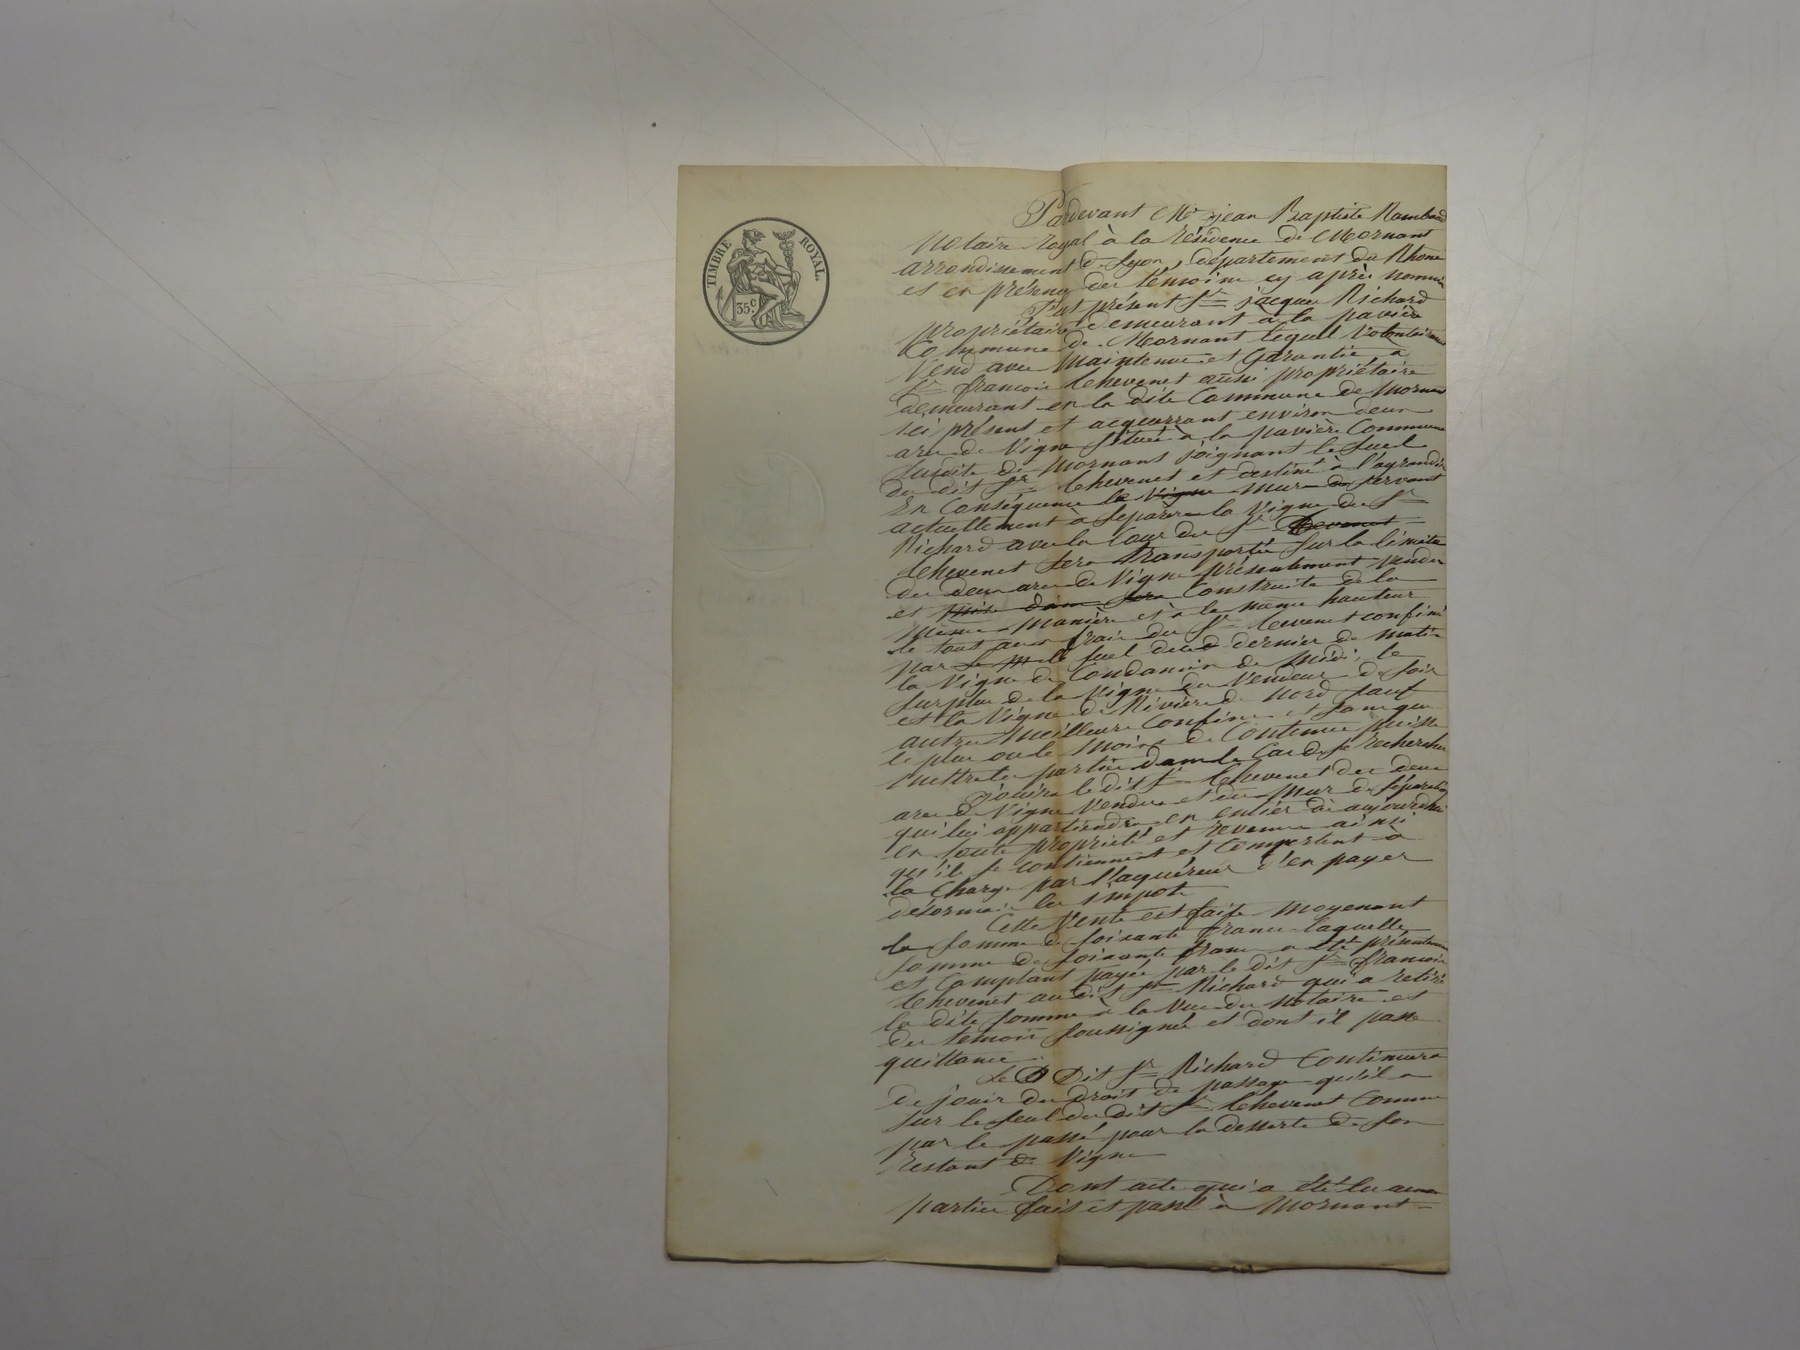 TIMBRE ROYAL
35 c.
Pardevant Me jean Baptiste Rambaud
Notaire Royal à la résidence de Mornant
arrondissement de Lyon, département du Rhône
et en présence des témoins cy après nommés
Est présent Sr jacques Richard
propriétaire demeurant à la pavière
Commune de Mornant lequel Volontairement
Vend avec Maintenue et Garantie a
Sr francois thevenet aussi propriétaire
demeurant en la dite Commune de Mornant
ici présent et acquerrant environ deux
ares de Vigne située à la pavière Commune
susdite de Mornant joignant le suel
du dit Sr thevenet et destiné à l'agrandir
En Conséquence le Vigne mur de servant
actuellement à séparer la Vigne du Sr
Richard avec la Cour du Sr thevenet
thevenet sera transporté sur la limite
des deux ares de Vigne présentement vendus
et sera Construite de la
même Manière et à la même hauteur
le tout aux frais du Sr tevenet confiné
par le suel de ce dernier de matin
la Vigne de Condamin de midi, le
surplus de la Vigne du Vendeur de soir
et la Vigne de Rivière de nord sauf
autres meilleurs Confins et sans que
le plus ou le moins de Contenue puisse
mettre les parties dans le Cas de se rechercher
jouira le dit Sr thevenet des deux
ares de Vigne Vendus et du mur de séparation
qui lui appartiendra en entier dès aujourdhui
en toute propriété et revenus ainsi
qu'ils se contiennent et comportent à
la Charge par l'aquéreur d'en payer
désormais les impots
Cette Vente est faite moyenant
la somme de soixante francs laquelle
somme de soixante francs a été présentement
et Comptant payée par le dit Sr francois
thevenet au dit Sr Richard qui a retiré
la dite somme à la Vue du Notaire et
des temoins soussignés et dont il passe
quittance
Le Dit Sr Richard Continuera
de jouir du droit de passage qu'il a
sur le seul du dit Sr thevenet Comme
par le passé pour la desserte de son
restant de Vigne
Dont acte qui a été lu aux
parties fait et passé à Mornant